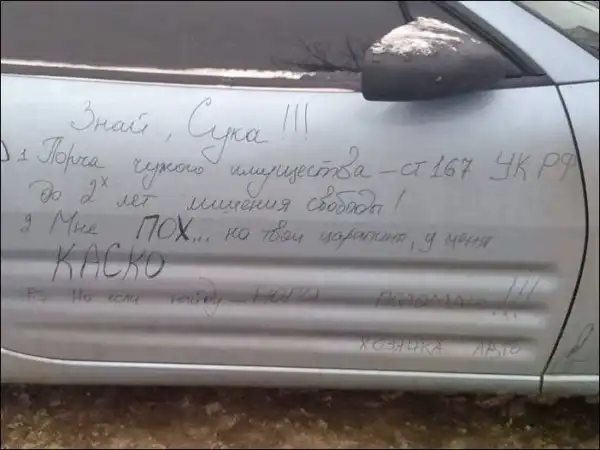 Знай, Сука !!!
1 Порча чужого имущества – ст 167 УК РФ
до 2х лет лишения свободы!
2 Мне ПОХ... на твои царапины, у меня
КАСКО
P.S. Но если найду... НОГИ ПЕРЕЛОМАЮ!!!
ХОЗЯЙКА АВТО